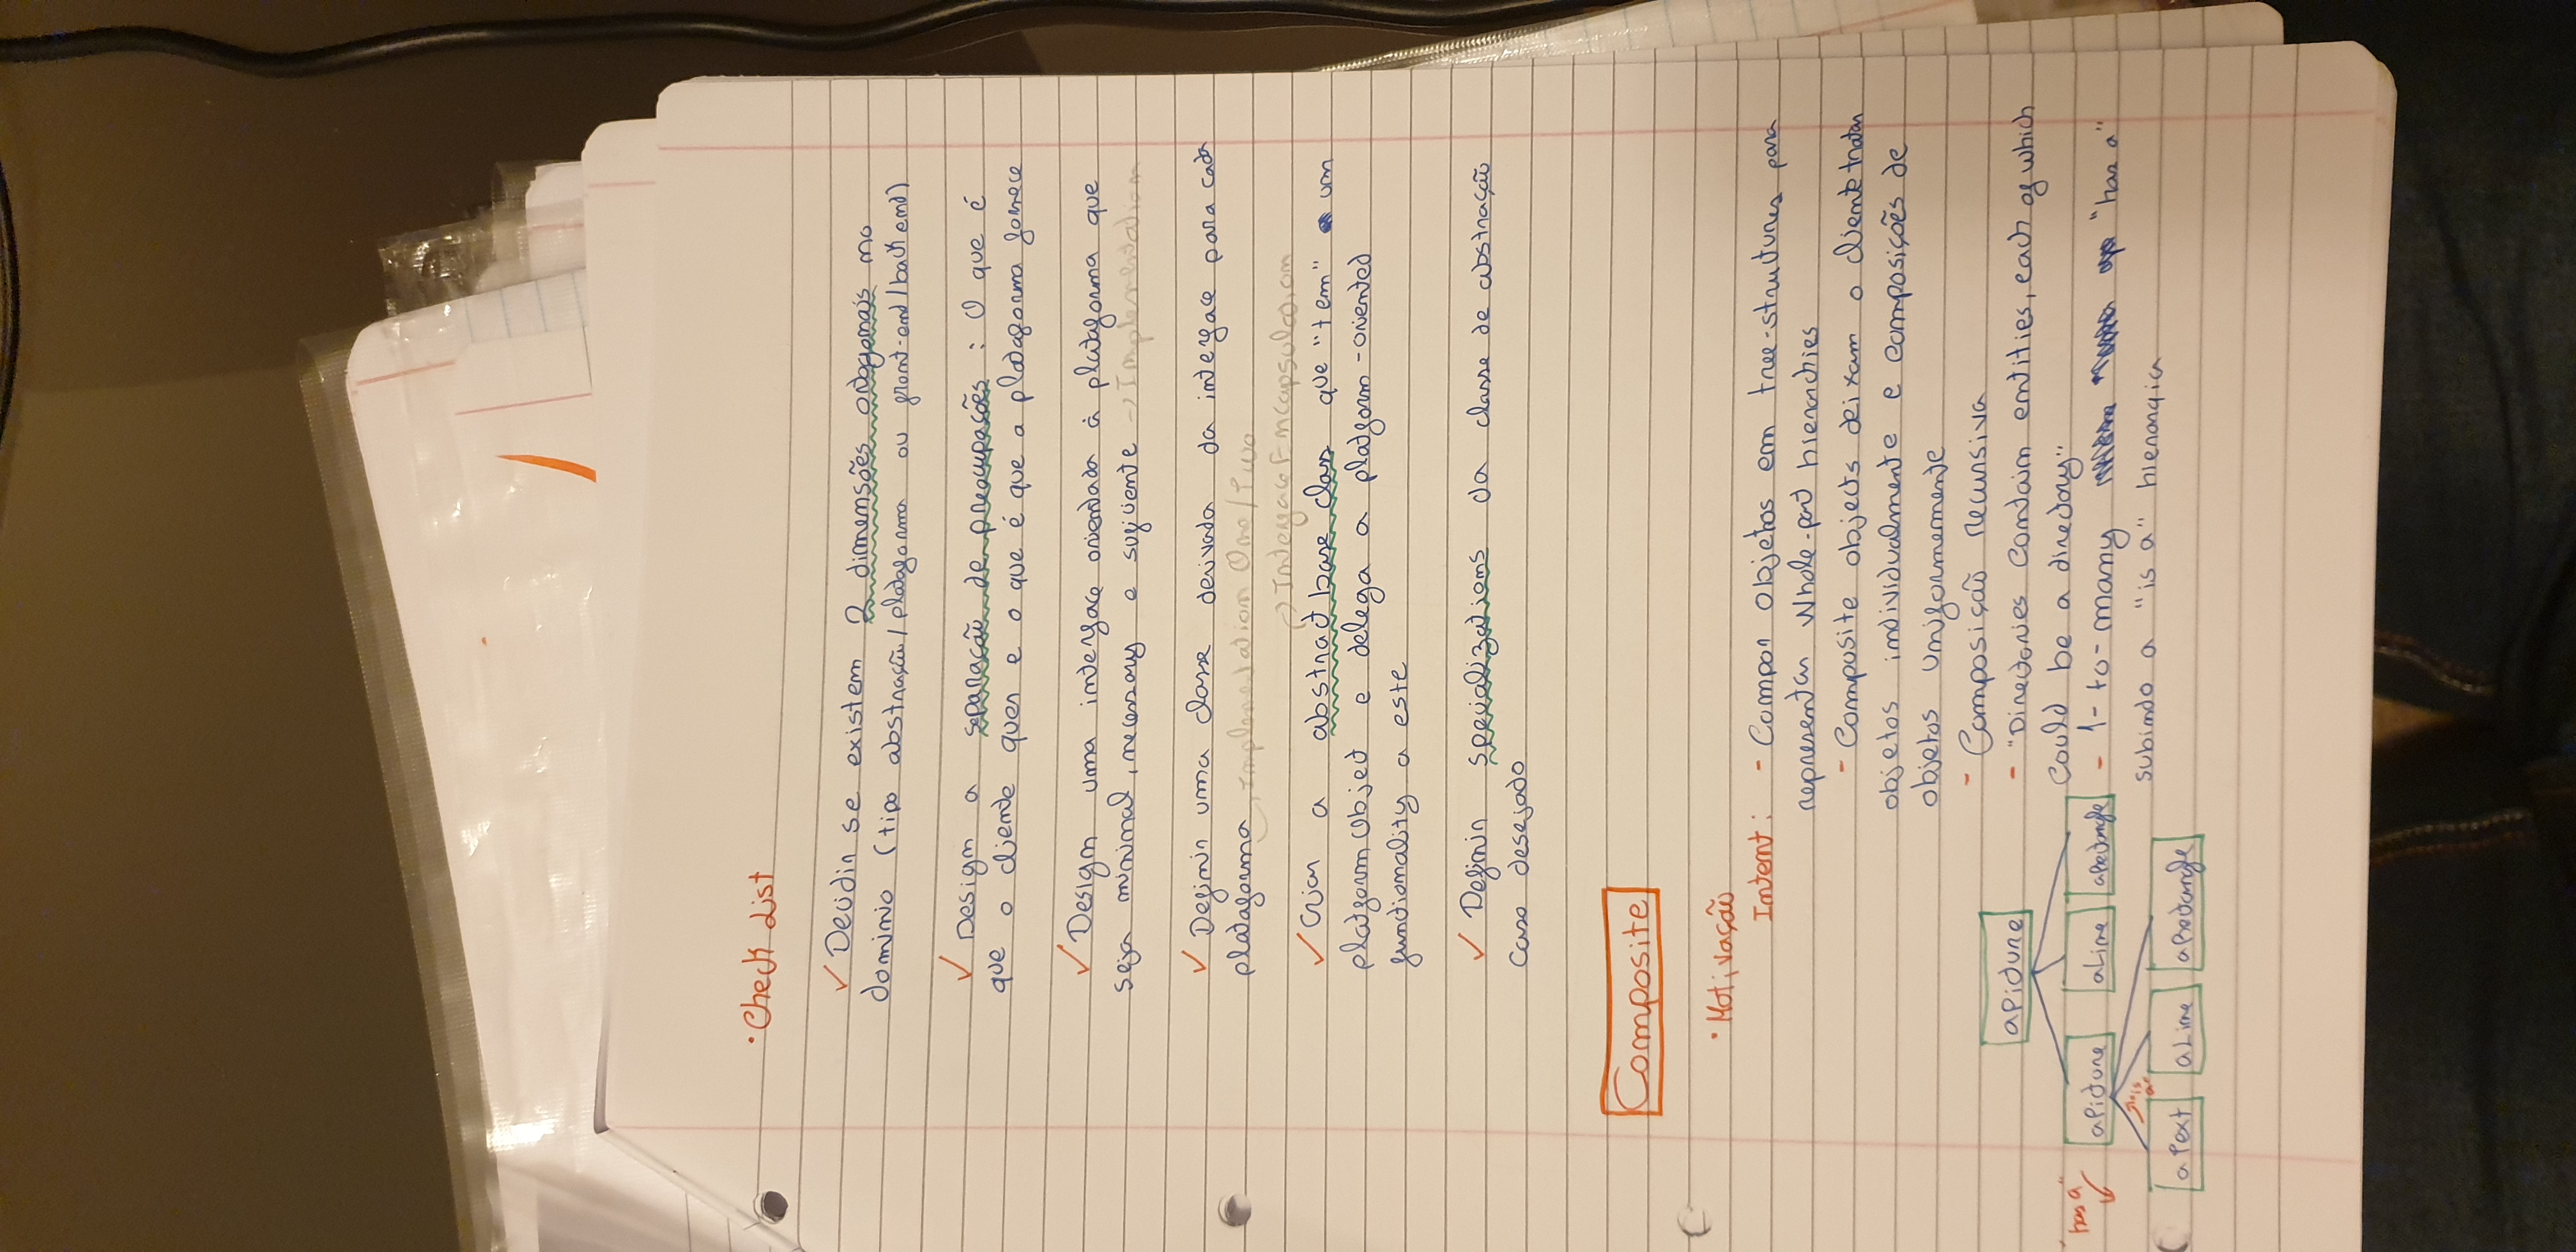 • Check List
✓ Decidir se existem 2 dimensões ortogonais no
dominio (tipo abstração/plataforma ou front-end/back end)
✓ Design a separação de preocupações : O que é
que o cliente quer e o que é que a plataforma fornece
✓ Design uma interface orientada à plataforma que
seja minimal, necessary e suficiente -> Implementation
✓ Definir uma classe derivada da interface para cada
plataforma -> Implementation One/Two
-> Interface Encapsulation
✓ Criar a abstract base class que "tem" um
platform object e delega a platform-oriented
functionality a este
✓ Definir specializations da classe de abstração
caso desejado
Composite
• Motivação
Intent: - Compor objetos em tree-structures para
representar whole-part hierarchies
- Composite objects deixam o cliente tratar
objetos individualmente e composições de
objetos uniformemente
- Composição recursiva
- "Directories contain entities, each of which
could be a directory"
- 1-to-many "has a"
subindo a "is a" hierarqia
aPicture
"has a"
aPicture aLine aRectangle
"is a"
aText aLine aRectangle